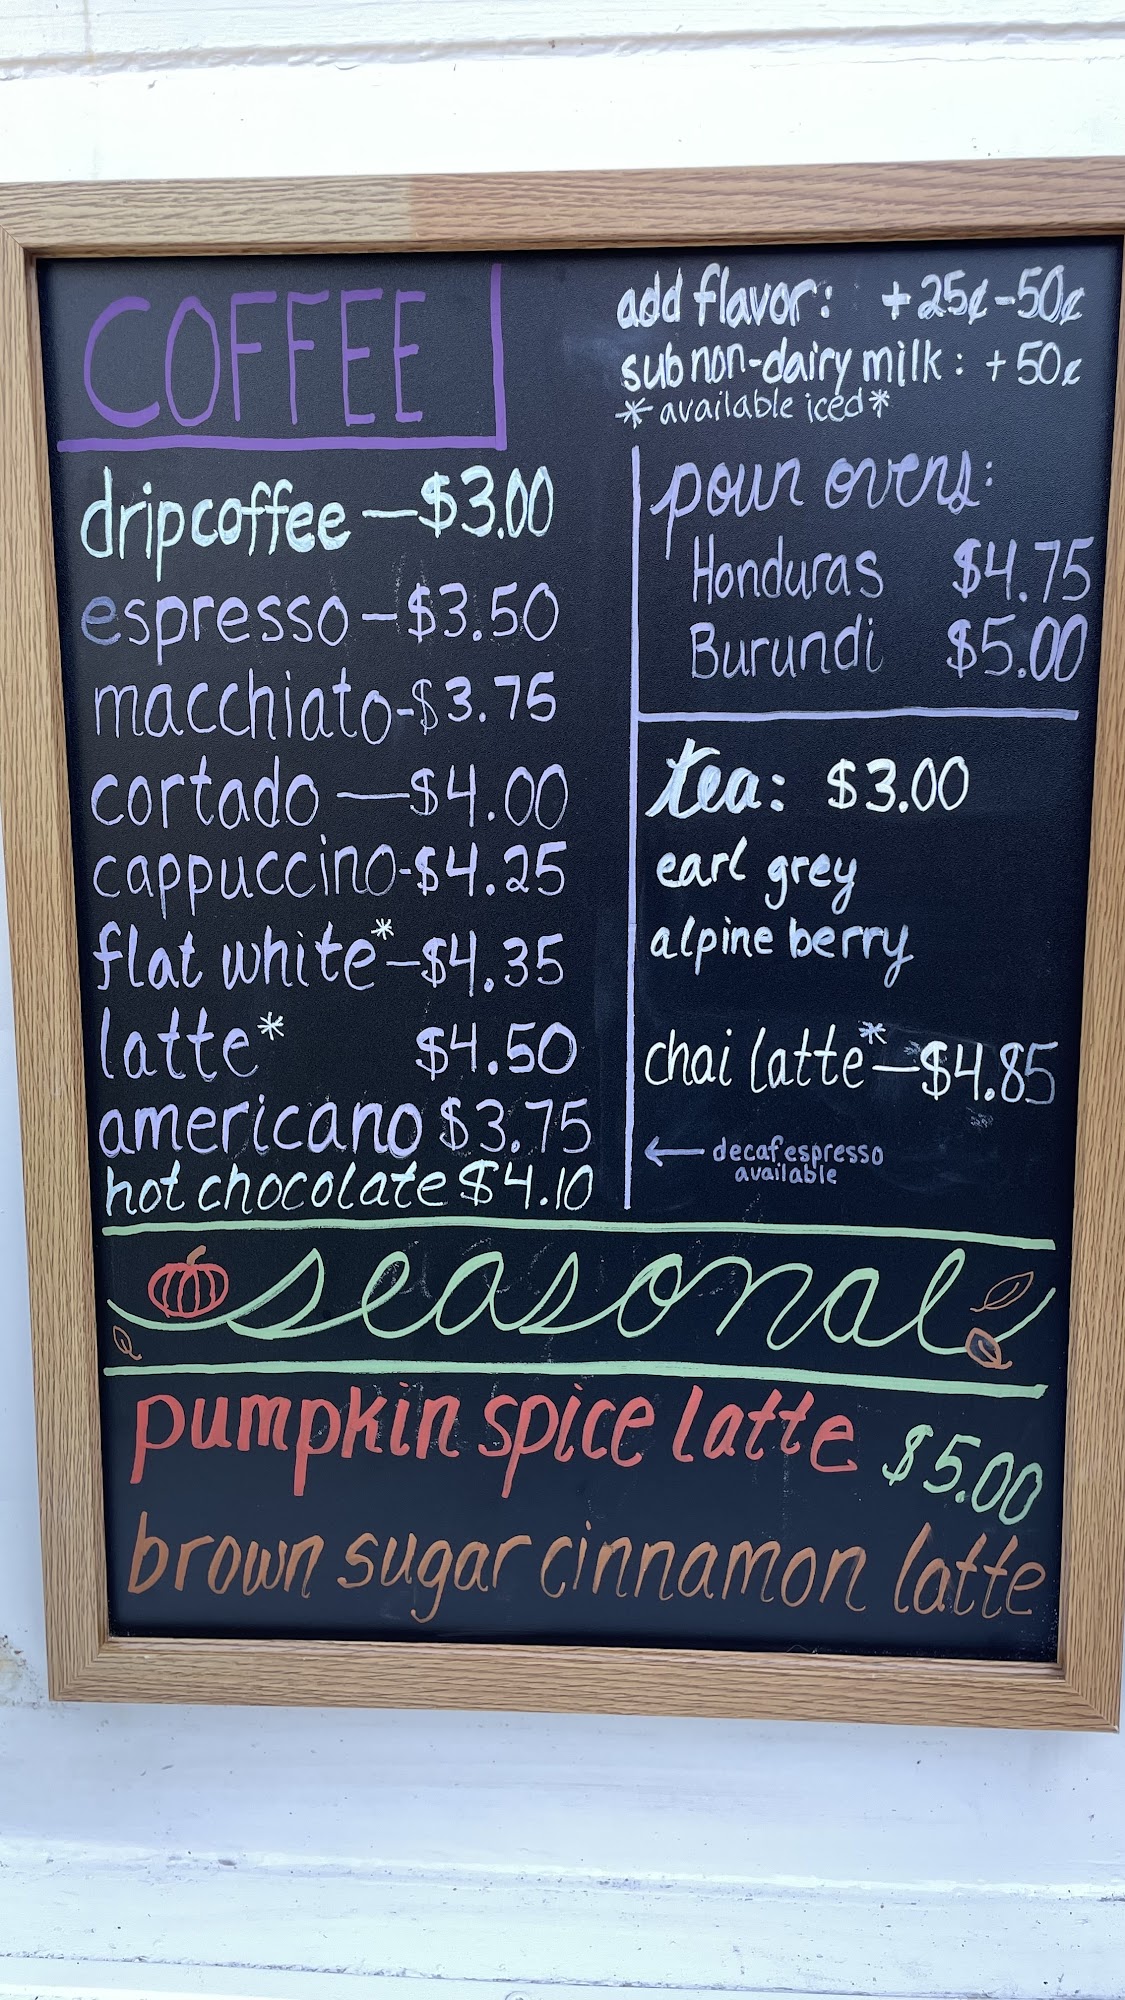 COFFEE
drip coffee — $3.00
espresso — $3.50
macchiato - $3.75
cortado — $4.00
cappuccino - $4.25
flat white* — $4.35
latte* $4.50
americano $3.75
hot chocolate $4.10
add flavor: +25¢-50¢
sub non-dairy milk: +50¢
* available iced *
pour overs:
Honduras $4.75
Burundi $5.00
tea: $3.00
earl grey
alpine berry
chai latte* — $4.85
← decaf espresso
available
seasonal
pumpkin spice latte $5.00
brown sugar cinnamon latte